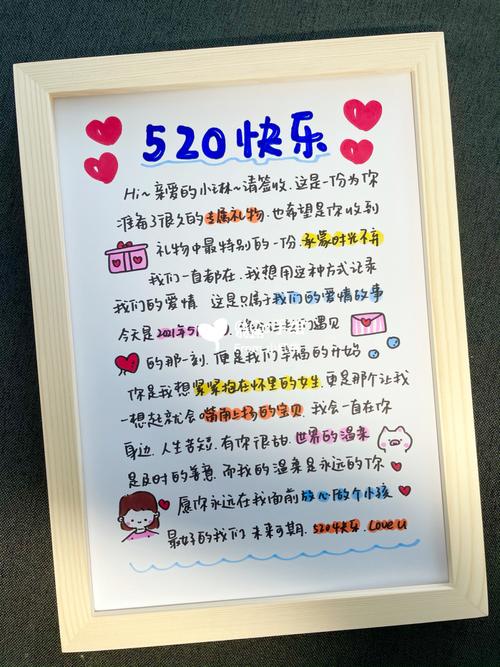 520快乐
Hi~亲爱的小琳~请签收.这是一份为你
准备了很久的专属礼物.也希望是你收到
礼物中最特别的一份.承蒙时光不弃
我们一直都在.我想用这种方式记录
我们的爱情 这是只属于我们的爱情故事
今天是2021年5 我们遇见
的那一刻.便是我们幸福的开始
你是我想紧紧抱在怀里的女生.更是那个让我
一想起就会嘴角上扬的宝贝.我会一直在你
身边.人生苦短.有你很甜.世界的温柔
是及时的善意.而我的温柔是永远的你
愿你永远在我面前放心做个小孩
最好的我们 未来可期.520快乐.Love u